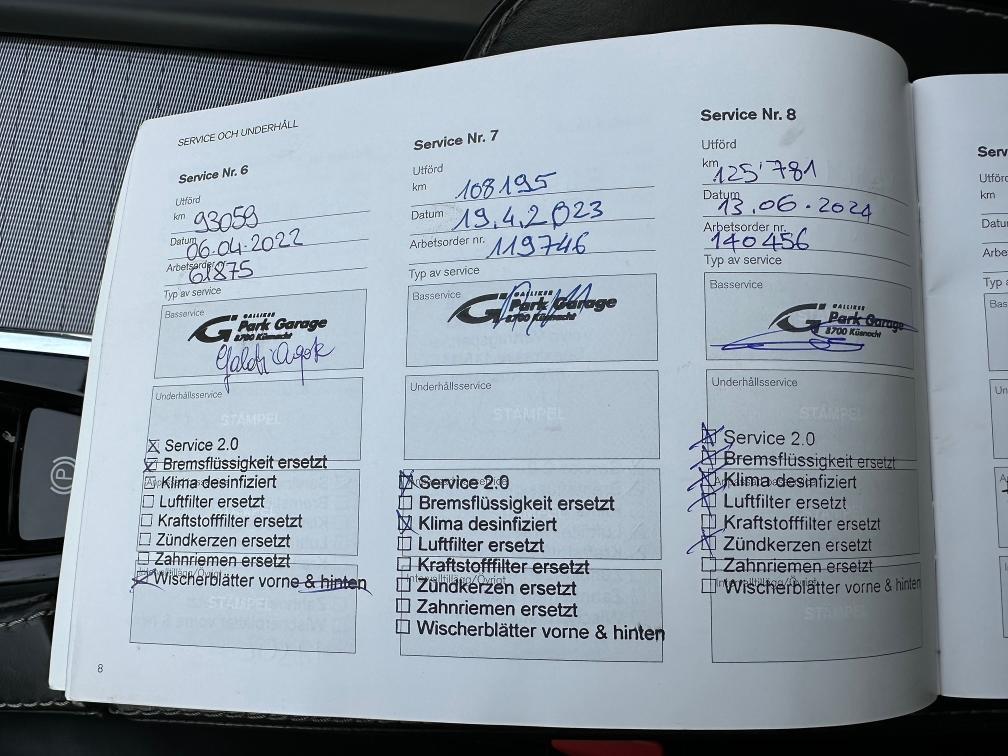 SERVICE OCH UNDERHÅLL
Service Nr. 6
Utförd
km 93059
Datum 06.04.2022
Arbetsorder 61875
Typ av service
Basservice
GALLIKER
Park Garage
8700 Küsnacht
Underhållsservice
STÄMPEL
Service 2.0
Bremsflüssigkeit ersetzt
Klima desinfiziert
Luftfilter ersetzt
Kraftstofffilter ersetzt
Zündkerzen ersetzt
Zahnriemen ersetzt
Intervalltillägg/Övrigt
Wischerblätter vorne & hinten
STÄMPEL
8
Service Nr. 7
Utförd
km 108195
Datum 19.4.2023
Arbetsorder nr. 119746
Typ av service
Basservice
GALLIKER
Park Garage
8700 Küsnacht
Underhållsservice
STÄMPEL
Service 2.0
Bremsflüssigkeit ersetzt
Klima desinfiziert
Luftfilter ersetzt
Kraftstofffilter ersetzt
Intervalltillägg/Övrigt
Zündkerzen ersetzt
Zahnriemen ersetzt
Wischerblätter vorne & hinten
Service Nr. 8
Utförd
km 125'781
Datum 13.06.2024
Arbetsorder nr. 140456
Typ av service
Basservice
GALLIKER
Park Garage
8700 Küsnacht
Underhållsservice
STÄMPEL
Service 2.0
Bremsflüssigkeit ersetzt
Klima desinfiziert
Luftfilter ersetzt
Kraftstofffilter ersetzt
Zündkerzen ersetzt
Zahnriemen ersetzt
Intervalltillägg/Övrigt
Wischerblätter vorne & hinten
STÄMPEL